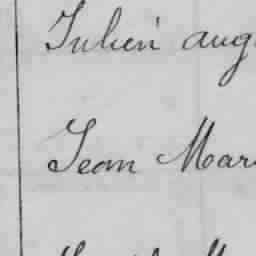 Julien aug
Jean Mar